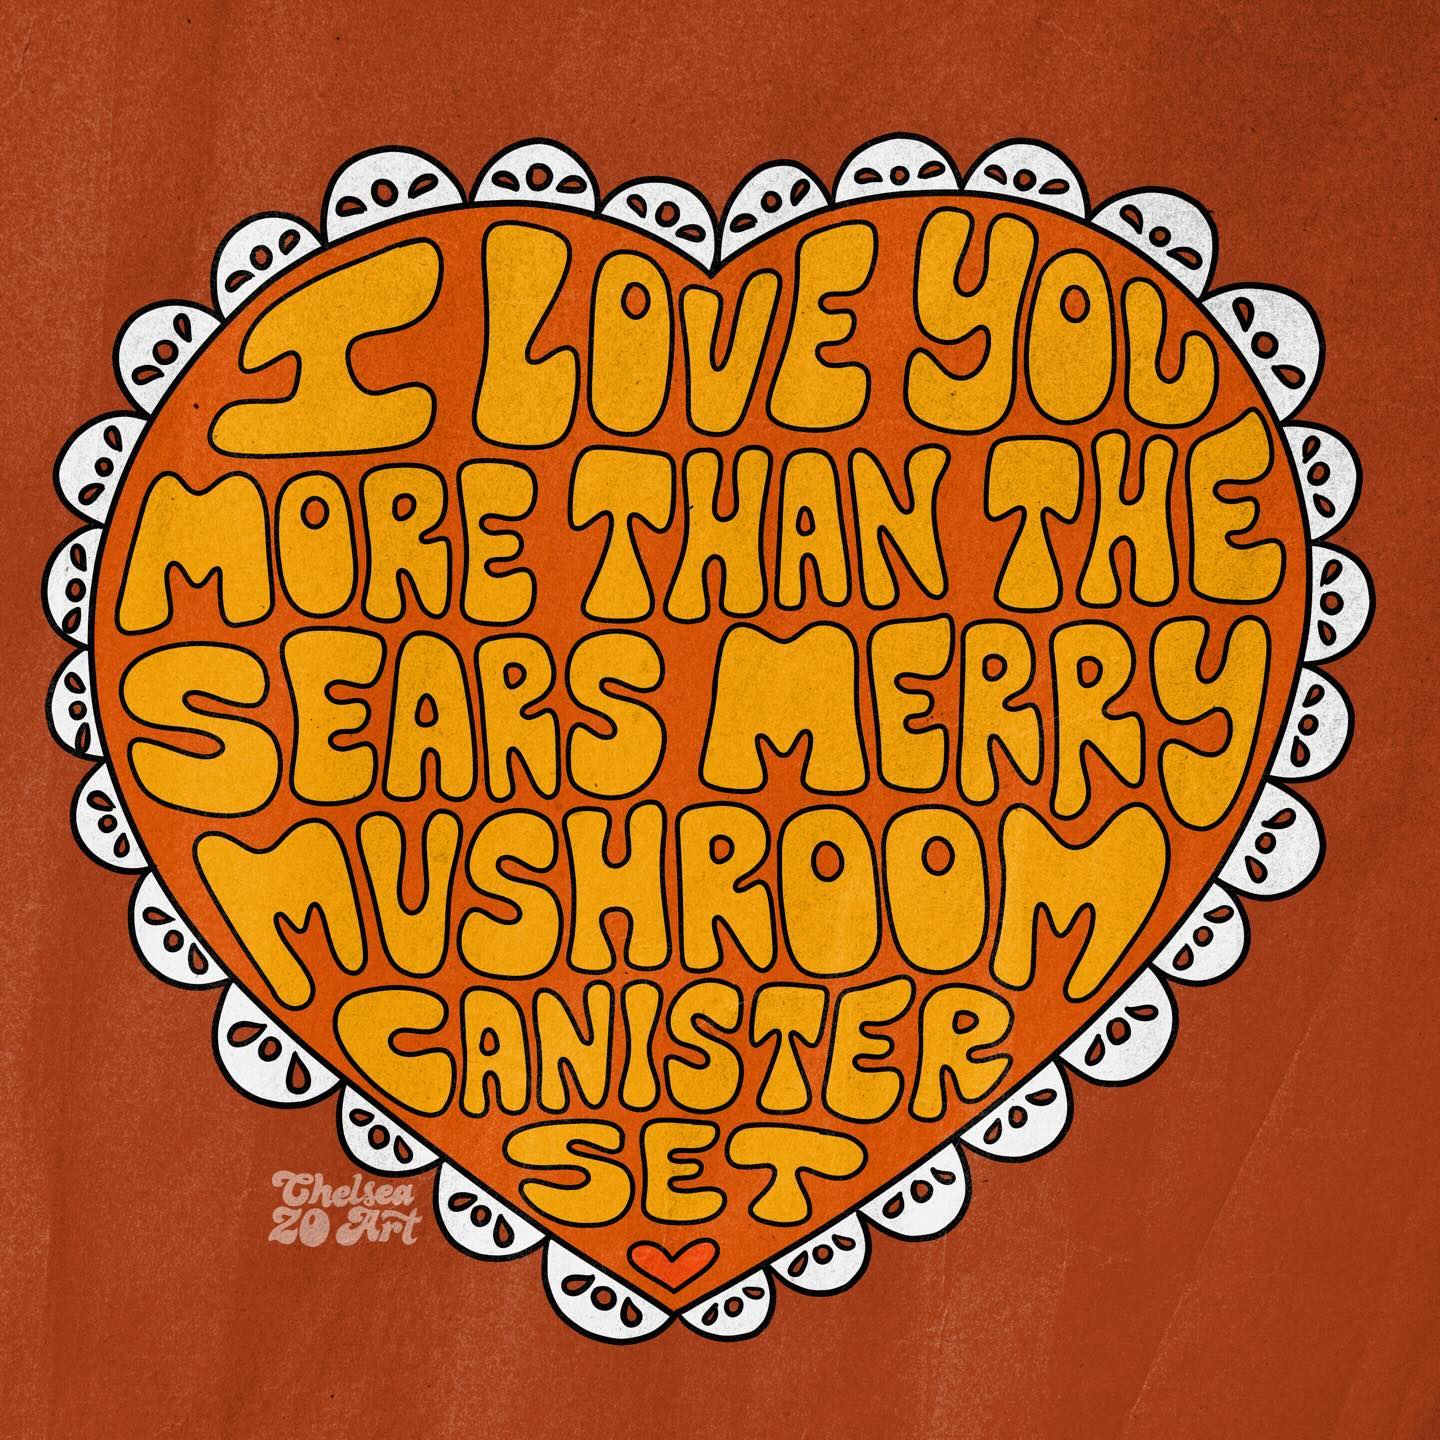 I LOVE YOU
MORE THAN THE
SEARS MERRY
MUSHROOM
CANISTER
SET
Chelsea
ZO Art